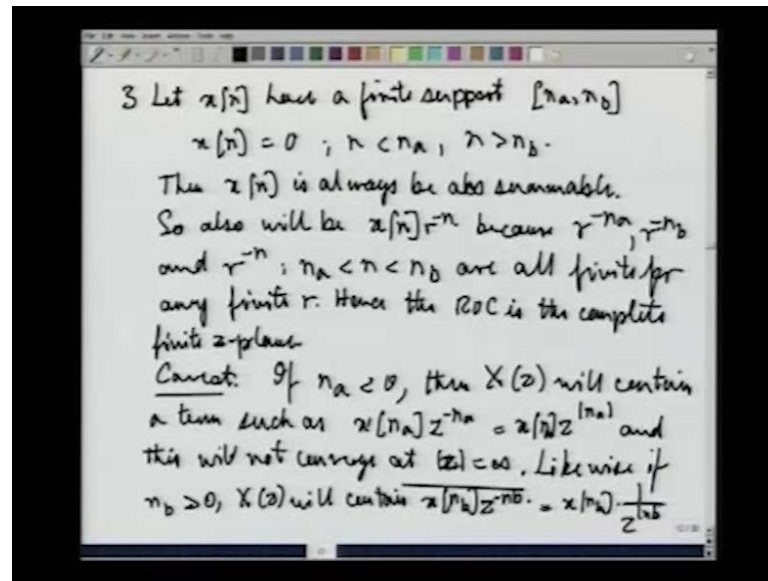 3 Let x[n] have a finite support [na, nb]
x[n] = 0 ; n < na, n > nb.
The x[n] is always be abs summable.
So also will be x[n]r^-n because r^-na, r^-nb
and r^-n ; na < n < nb are all finite for
any finite r. Hence the ROC is the complete
finite z-plane
Caveat: If na < 0, then X(z) will contain
a term such as x[na]z^-na = x[n]z^|na| and
this will not converge at |z| = ∞. Likewise if
nb > 0, X(z) will contain x[nb]z^-nb. = x[nb].1/z^|nb